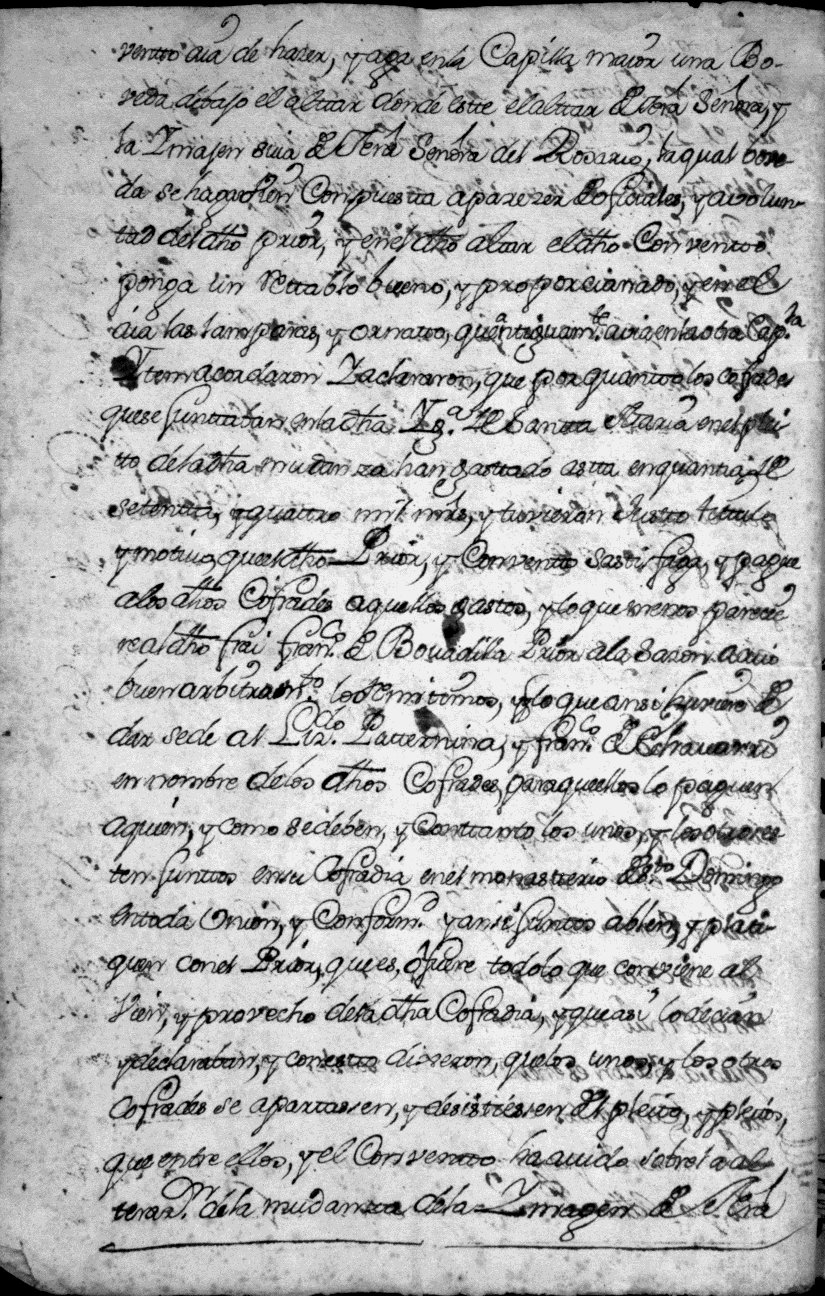 vento aia de hazer, y aga en la Capilla maior una Bo-
veda debajo el alttar donde estte el alttar de Nrâ Señora, y
la Ymajen sua de Nrâ Señora del Rosario, la qual bove-
da se haga vien Conpuestta a parezer de oficiales, y a volun-
ttad del dho prior, y en el dho altar el dho Conventto
ponga un rettablo bueno, y proporcianado, y en el
aia las lamparas, y ornatto, que antiguamte. avia en la otra Capla.
Yttem acordaron y aclararon, que por quantto los cofrades
que se junttaban en la dha Yga. de Santta Maria en el plei
tto de la dha mudanza han gasttado astta en quantia de
settentta, y quattro mil mrs, y tuvieron Justto tittulo
y motivo, que el dho Prior, y Conventto sattisfaga, y pague
a los dhos Cofrades aquellos gastos, y lo que menos parecie
re al dho frai Franco. de Bovadilla Prior a la sazon a cuio
buen arbitramto. lo remitimos, y lo que ansi huviere de
dar se de al Lizdo. Patternina, y franco. de Echavarria
en nombre de los dhos Cofrades, para que ellos lo paguen
a quien, y como se deben, y Con tanto los unos, y los otros es
ten junttos en su Cofradia en el monastterio de Sto. Domingo
en toda Union, y Conformd. y ansi junttos ablen, y platti-
quen con el Prior, que es, o fuere todo lo que conviene al
vien, y provecho de la dha Cofradia, y que asi lo decian
y declaraban, y con estto dixeron, que los unos, y los otros
Cofrades se apartasen, y desisttiesen del pleito, y pleitos,
que entre ellos, y el Conventto ha avido sobre la al
terazn. de la mudanza de la Ymagen de Nrâ